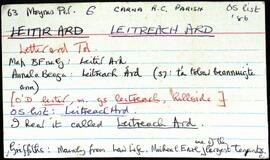 63 Moyrus Par. 6 CARNA R.C. PARISH OS List '86
LEITIR ARD LEITREACH ARD
Letterard Td.
Map BEnaty: Leitir Ard
Annála Beaga: Leitreach Ard (37: tá tobar beannuighte ann)
[O'D leitir, m. gs leitreach, hillside]
OS list: Leitreach Ard
I heard it called Leitreach Ard.
Griffiths: Mainly from Law Life. Michael Earl one of the largest Tenants.